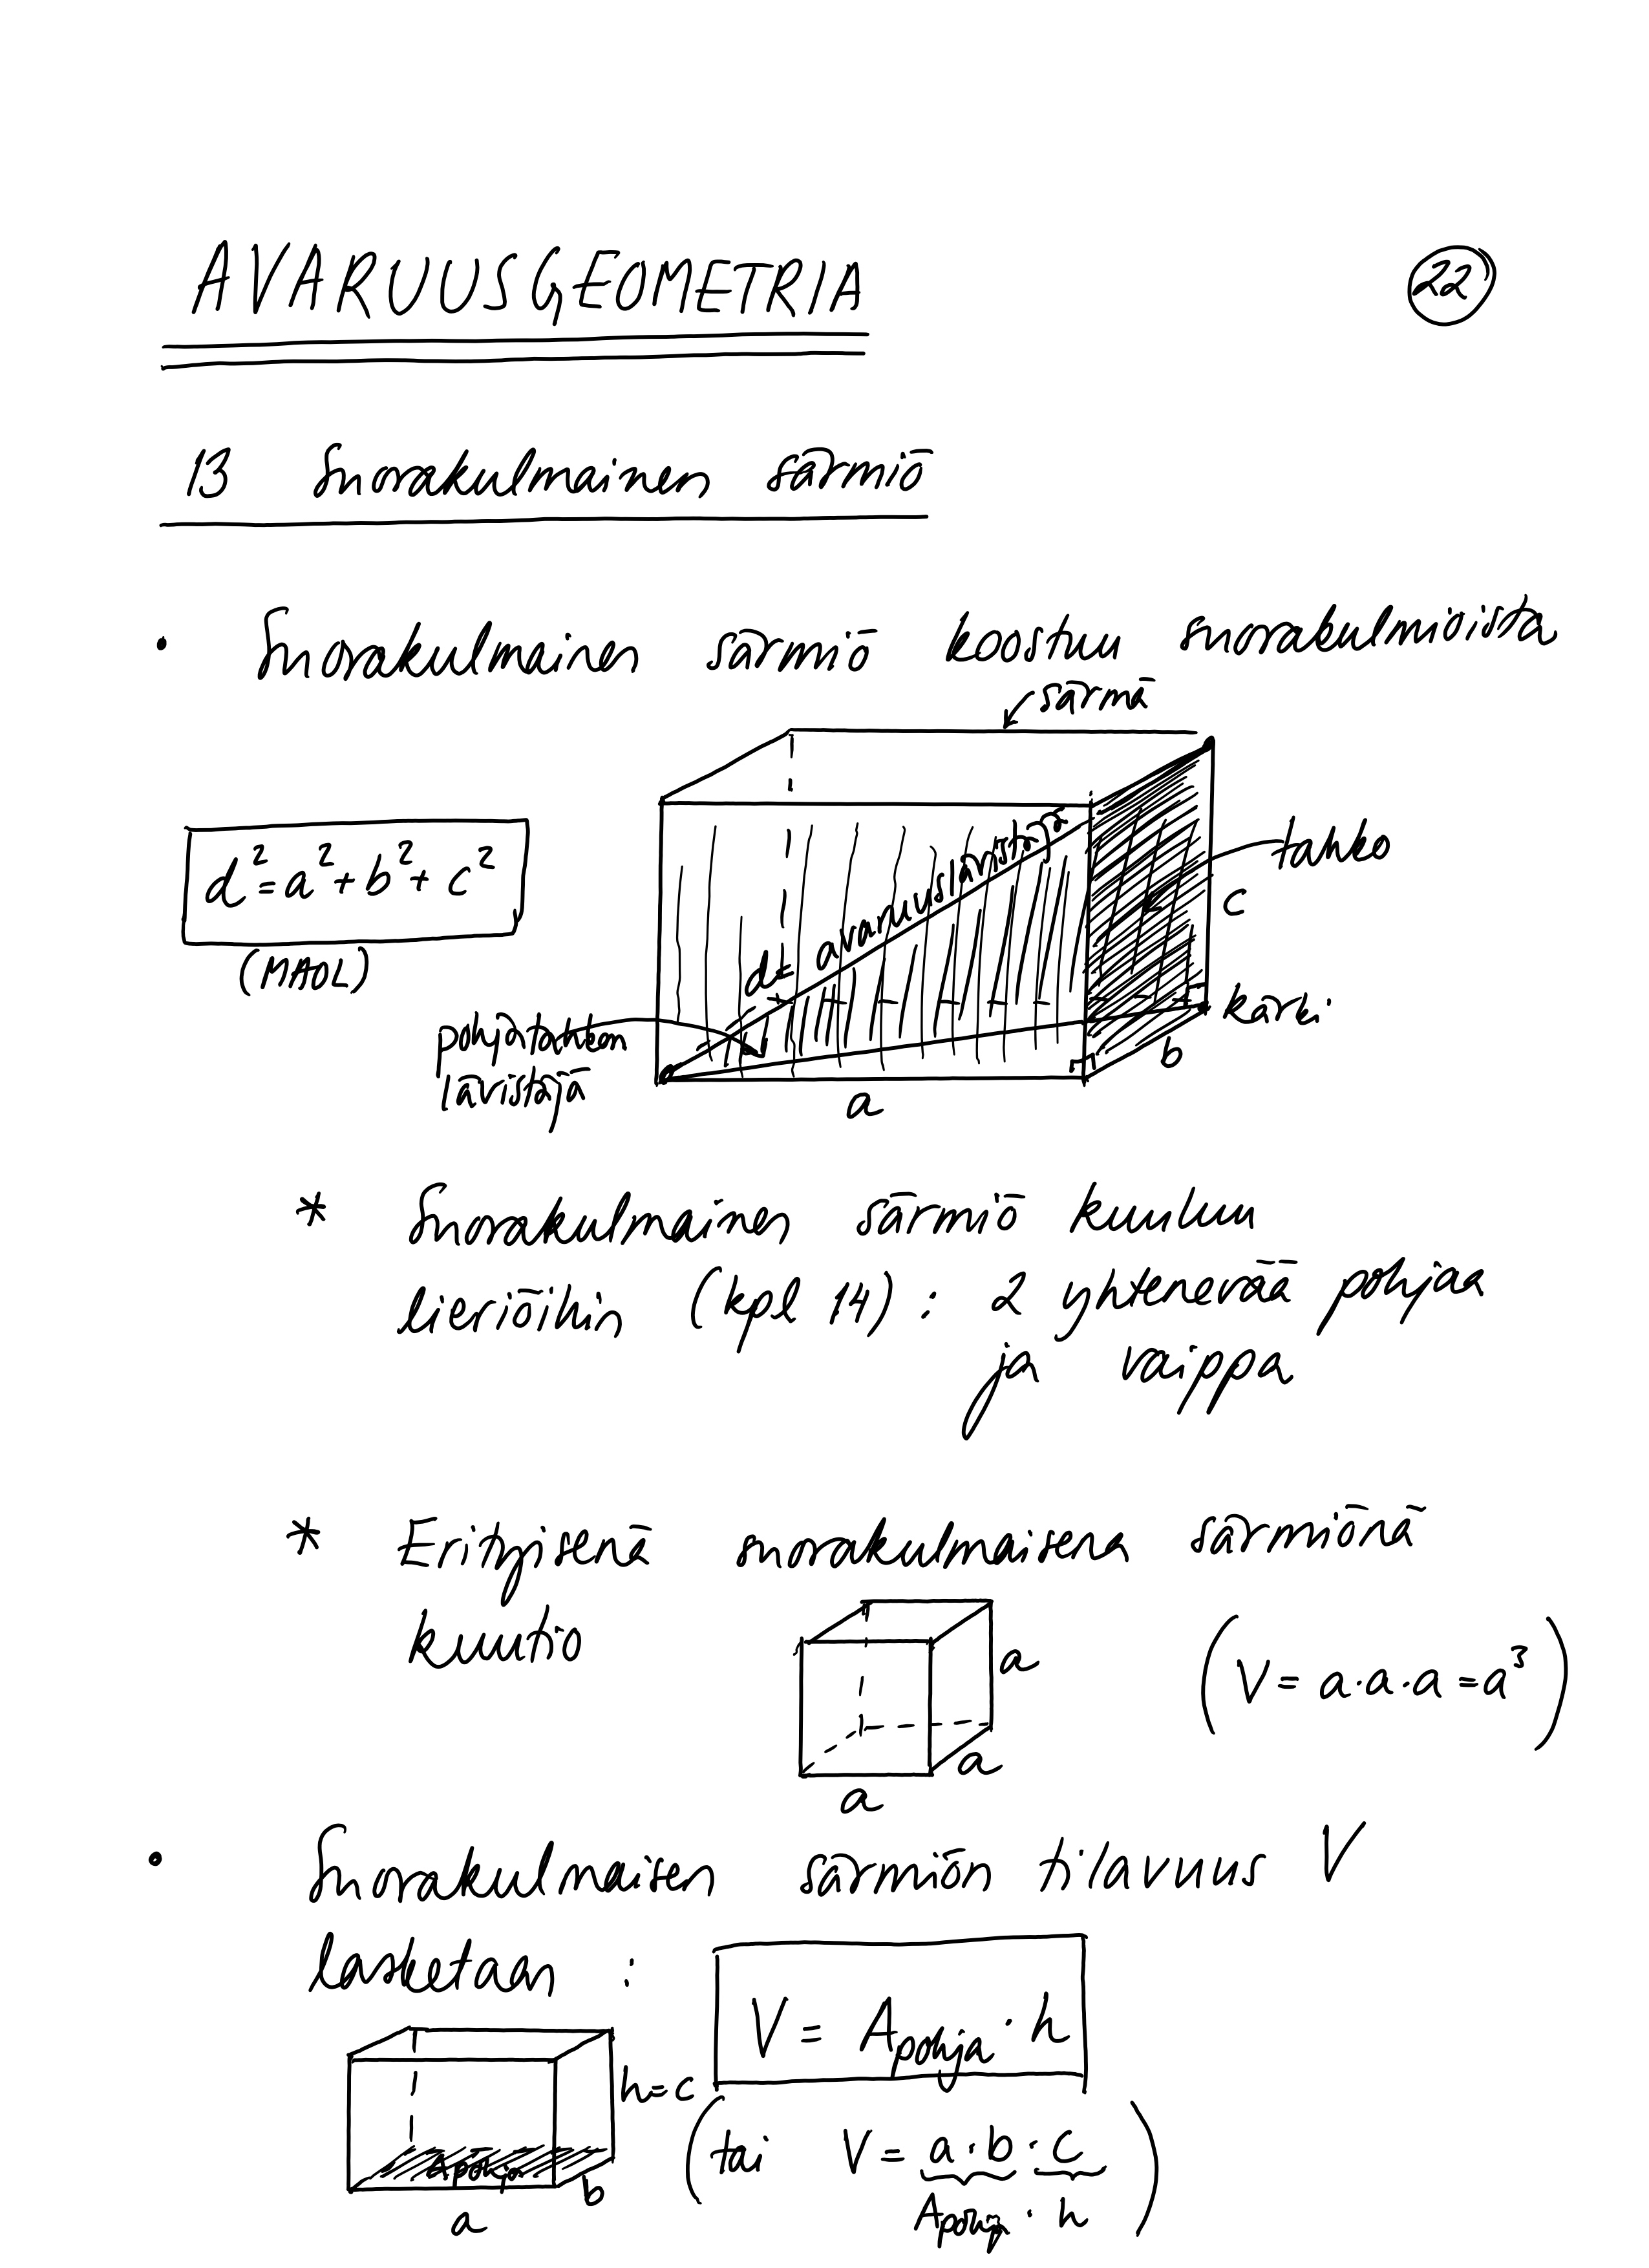 AVARUUSGEOMETRIA
22
13 Suorakulmainen särmiö
• Suorakulmainen särmiö koostuu suorakulmioista
särmä
d² = a² + b² + c²
(MAOL)
d = avaruuslävistäjä
tahko
c
kärki
pohjatahkon
lävistäjä
b
a
* Suorakulmainen särmiö kuuluu
lieriöihin (kpl 14) : 2 yhtenevää pohjaa
ja vaippa
* Erityisenä suorakulmaisena särmiönä
kuutio
a
a
a
(V = a·a·a = a³)
• Suorakulmaisen särmiön tilavuus V
lasketaan :
V = Apohja · h
h = c
Apohja
b
a
(tai V = a·b·c)
Apohja · h